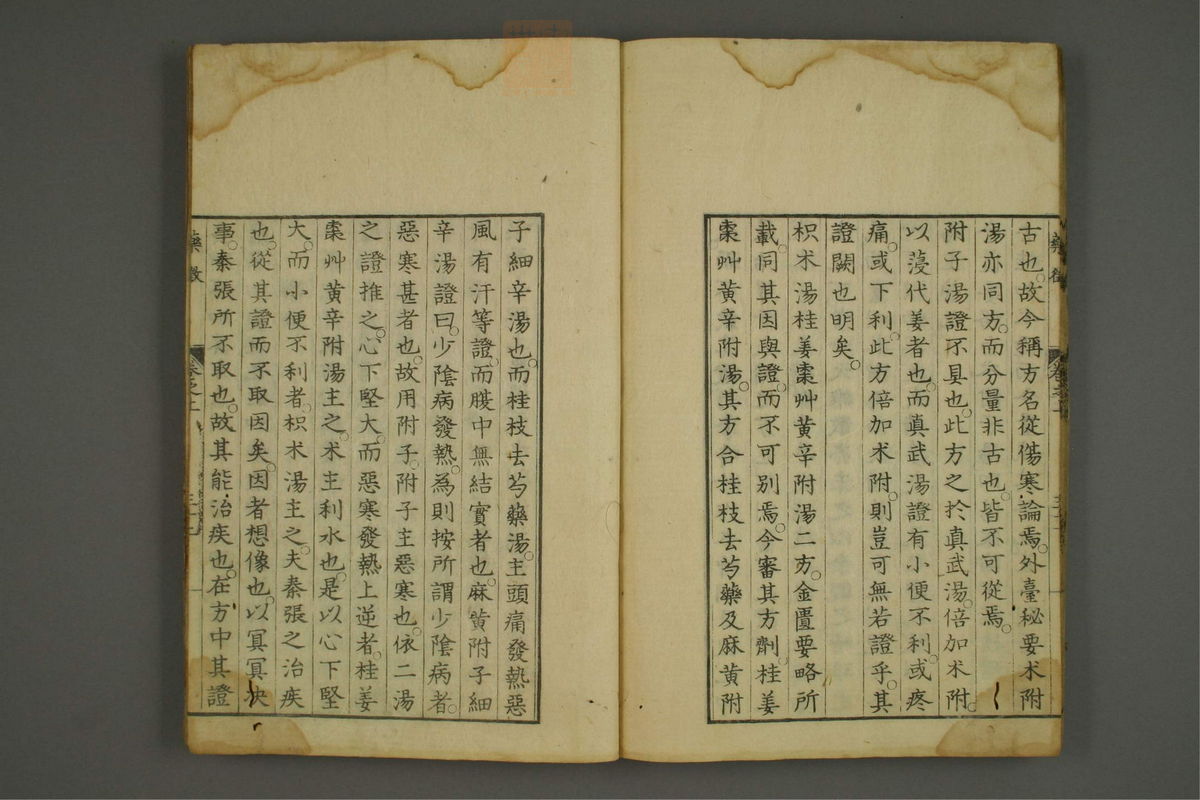 古也。故今稱方名從傷寒論焉。外臺秘要朮附
湯亦同方。而分量非古也。皆不可從焉。
附子湯證不具也。此方之於真武湯。倍加朮附。
以葠代姜者也。而真武湯證有小便不利。或疼
痛。或下利。此方倍加朮附。則豈可無若證乎。其
證闕也明矣。
枳朮湯桂姜棗艸黃辛附湯二方。金匱要略所
載。同其因與證。而不可別焉。今審其方劑。桂姜
棗艸黃辛附湯。其方合桂枝去芍藥及麻黃附
子細辛湯也。而桂枝去芍藥湯。主頭痛發熱惡
風有汗等證。而腹中無結實者也。麻黃附子細
辛湯證曰。少陰病發熱。為則按所謂少陰病者。
惡寒甚者也。故用附子。附子主惡寒也。依二湯
之證推之。心下堅大。而惡寒發熱上逆者。桂姜
棗艸黃辛附湯主之。朮主利水也。是以心下堅
大。而小便不利者。枳朮湯主之。夫秦張之治疾
也。從其證而不取因矣。因者想像也。以冥冥決
事。秦張所不取也。故其能治疾也。在方中其證
藥徵
卷之上